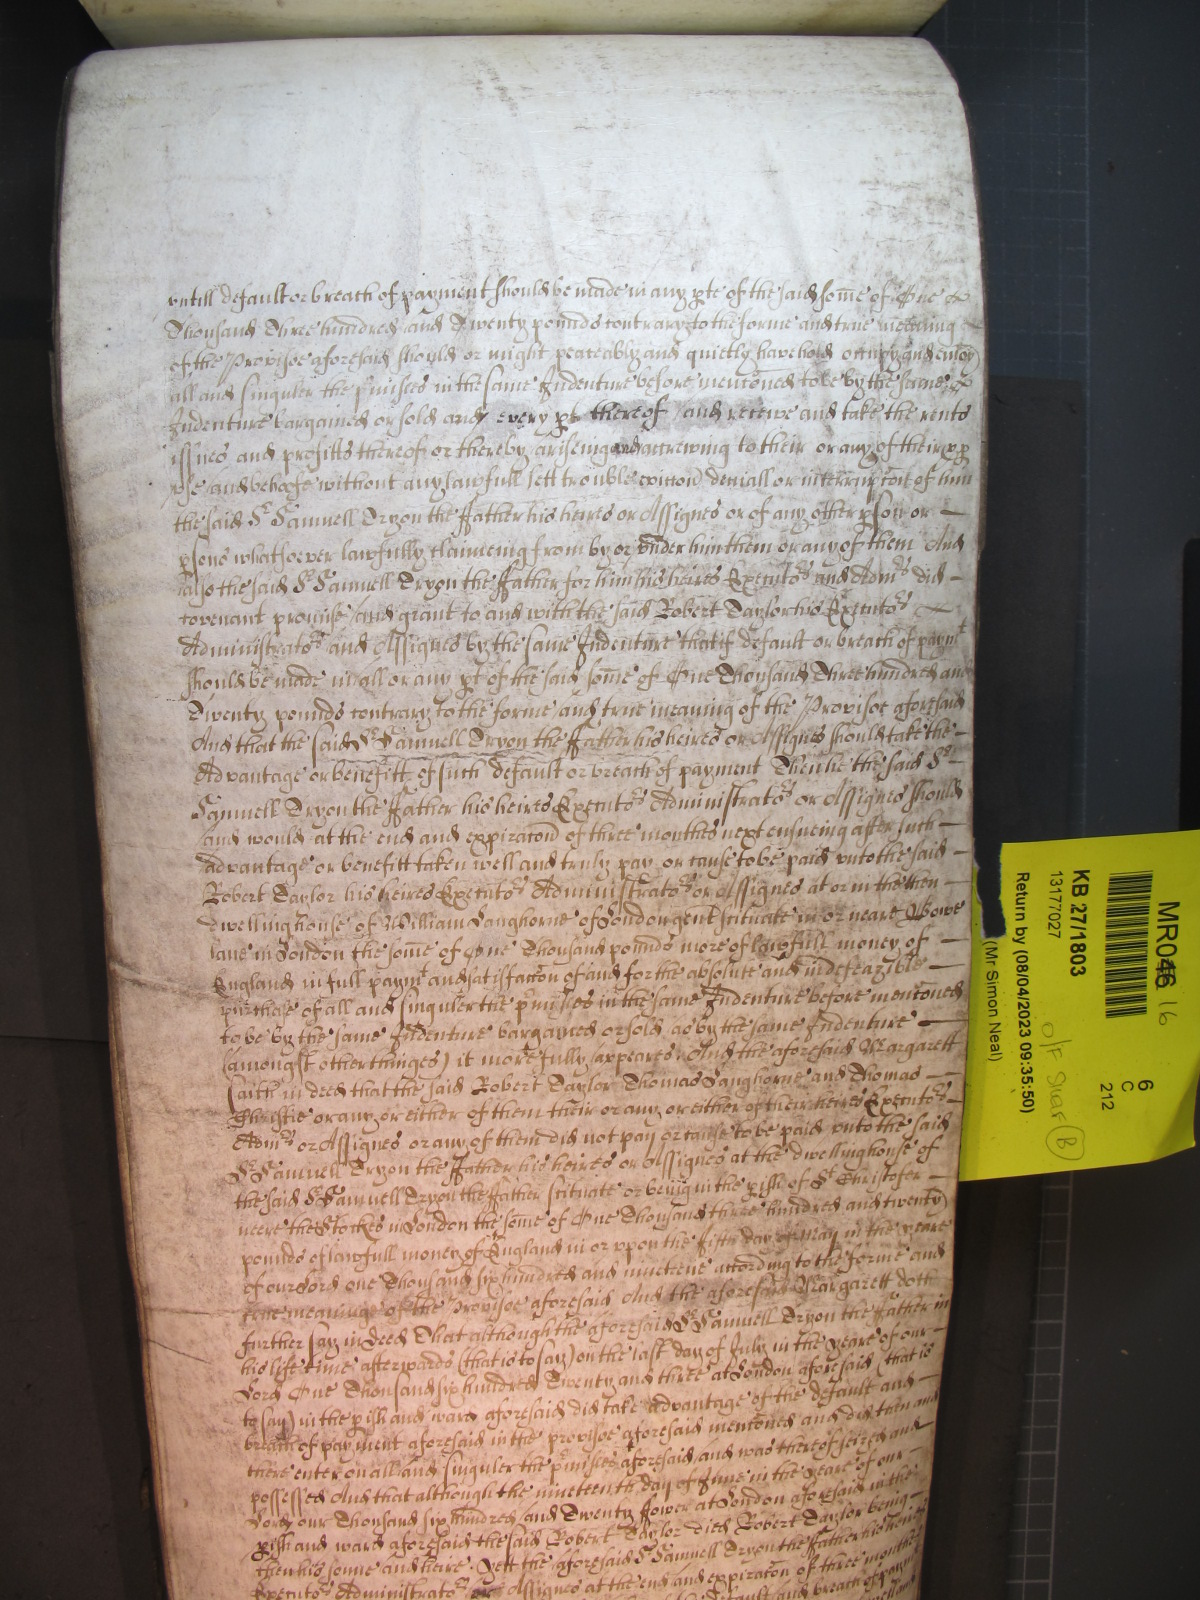 vntill default or breach of payment should be made in any pte of the said some of One
Thousand Three hundred and Twenty pounds contrary to the forme and true meaning
of the Provisoe aforesaid should or might peaceably and quietly have hold occupy and enioy
all and singuler the pmisses in the same Indenture before mentoned to be by the same
Indenture bargained or sold and every pt thereof and receive and take the rents
issues and profitts thereof or thereby ariseing and accrewing to their or any of their pp
vse and behoofe without any lawfull lett trouble eviccon deniall or interrupcon of him
the said Sr Samuell Tryon the Father his heires or Assignes or of any other pson or
psons whatsoever lawfully claimeing from by or vnder him them or any of them And
also the said Sr Samuell Tryon the Father for him his heires Executors and Admrs did
covenant promise and grant to and with the said Robert Taylor his Executors
Administrators and Assignes by the same Indenture that if default or breach of paymt
should be made in all or any pt of the said some of One Thousand Three hundred and
Twenty pounds contrary to the forme and true meaning of the Provisoe aforesaid
And that the said Sr Samuell Tryon the Father his heires or Assignes should take the
Advantage or benefitt of such default or breach of payment Then he the said Sr
Samuell Tryon the Father his heires Executors Administrators or Assignes should
and would at the end and expiracon of three monthes next ensueing after such
advantage or benefitt taken well and truly pay or cause to be paid vnto the said
Robert Taylor his heires Executors Administrators or Assignes at or in the then
dwelling house of William Langhorne of London gent scituate in or neare Bowe
lane in London the some of One Thousand pounds more of lawfull money of
England in full paymt and satisfaccon of and for the absolute and indefeazible
purchase of all and singuler the pmisses in the same Indenture before mentoned
to be by the same Indenture bargained or sold as by the same Indenture
(amongst other thinges) it more fully appeares. And the aforesaid Margarett
saith in deed that the said Robert Taylor Thomas Langhorne and Thomas
Christie or any or either of them their or any or either of their heires Executors
Admrs or Assignes or any of them did not pay or cause to be paid vnto the said
Sr Samuell Tryon the Father his heires or Assignes at the dwelling house of
the said Sr Samuell Tryon the Father scituate or being in the pish of St Christofer
neere the Stockes in London the some of One Thousand three hundred and twenty
pounds of lawfull money of England in or vpon the fifth day of May in the yeare
of our Lord one Thousand six hundred and nineteene according to the forme and
true meaninge of the Provisoe aforesaid And the aforesaid Margarett doth
further say in deed That although the aforesaid Sr Samuell Tryon the Father in
his life time afterwards (that is to say) on the last day of July in the yeare of our
Lord One Thousand six hundred Twenty and three at London aforesaid (that is
to say) in the pish and ward aforesaid did take advantage of the default and
breach of payment aforesaid in the provisoe aforesaid mentoned and did then and
there enter on all and singuler the pmisses aforesaid and was thereof seized and
possessed And that although the nineteenth day of June in the yeare of our
Lord one Thousand six hundred and Twenty Fower at London aforesaid in the
pish and ward aforesaid the said Robert Taylor died Robert Taylor being
then his sonne and heire. Yett the aforesaid Sr Samuell Tryon the Father his heires
Executors Administrators or Assignes at the end and expiracon of three monthes
MR046 16
KB 27/1803
13177027
Return by (08/04/2023 09:35:50)
(Mr Simon Neal)
6
C
212
O/F
B